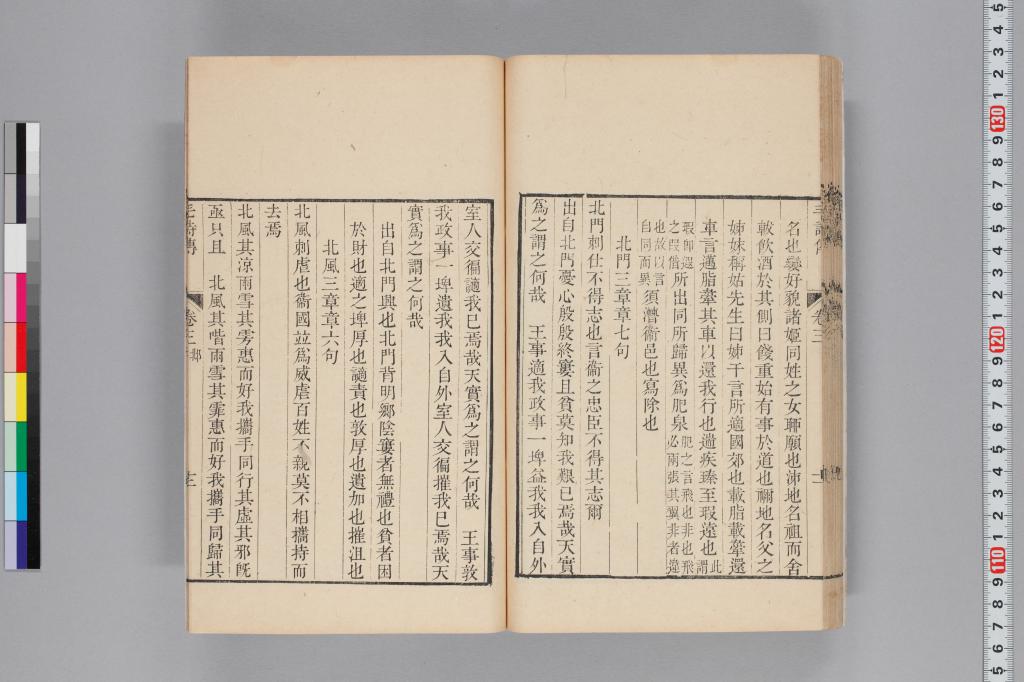 名也孌好貌諸姬同姓之女聊願也泲地名祖而舍
軷飲酒於其側曰餞重始有事於道也禰地名父之
姊妹稱姑先生曰姊干言所適國郊也載脂載舝還
車言邁脂舝其車以還我行也遄疾臻至瑕遠也此謂
瑕卽遐之叚借也故以言自同而異所出同所歸異爲肥泉肥之言飛也非也飛必兩張其翼非者違
須漕衞邑也寫除也
北門三章章七句
北門刺仕不得志也言衞之忠臣不得其志爾
出自北門憂心殷殷終窶且貧莫知我艱已焉哉天實
爲之謂之何哉　王事適我政事一埤益我我入自外
室人交徧讁我已焉哉天實爲之謂之何哉　王事敦
我政事一埤遺我我入自外室人交徧摧我已焉哉天
實爲之謂之何哉
出自北門興也北門背明鄉陰窶者無禮也貧者困
於財也適之埤厚也讁責也敦厚也遺加也摧沮也
北風三章章六句
北風刺虐也衞國並爲威虐百姓不親莫不相攜持而
去焉
北風其涼雨雪其雱惠而好我攜手同行其虛其邪旣
亟只且　北風其喈雨雪其霏惠而好我攜手同歸其
毛詩傳　卷三　邶